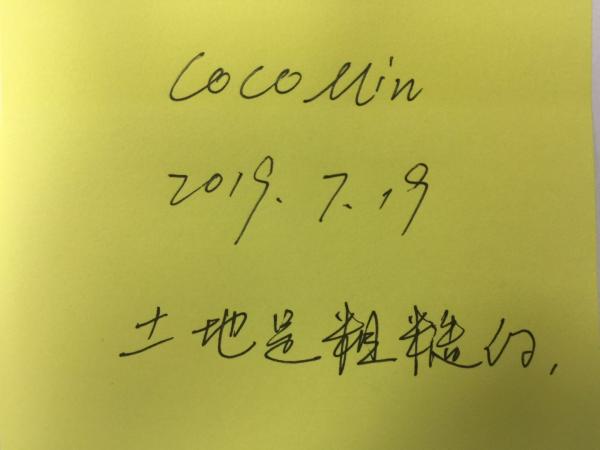 Coco Min
2019.7.19
土地是粗糙的,